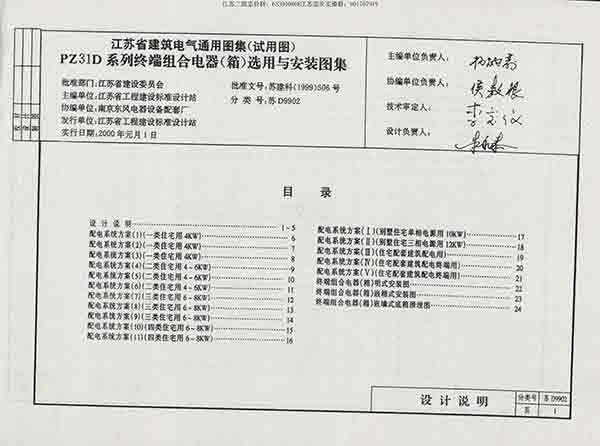 江苏省建筑电气通用图集(试用图)
PZ31D 系列终端组合电器(箱)选用与安装图集
批准部门:江苏省建设委员会
批准文号:苏建科(1999)506号
主编单位:江苏省工程建设标准设计站
分 类 号:苏D9902
协编单位:南京东风电器设备配套厂
发行单位:江苏省工程建设标准设计站
实行日期:2000年元月1日
主编单位负责人:
协编单位负责人:
技术审定人:
设计负责人:
目 录
设计说明 1-5
配电系统方案(1)(一类住宅用4KW) 6
配电系统方案(2)(一类住宅用4KW) 7
配电系统方案(3)(一类住宅用4KW) 8
配电系统方案(4)(二类住宅用4-6KW) 9
配电系统方案(5)(二类住宅用4-6KW) 10
配电系统方案(6)(二类住宅用4-6KW) 11
配电系统方案(7)(三类住宅用6-8KW) 12
配电系统方案(8)(三类住宅用6-8KW) 13
配电系统方案(9)(三类住宅用6-8KW) 14
配电系统方案(10)(四类住宅用6-8KW) 15
配电系统方案(11)(四类住宅用6-8KW) 16
配电系统方案(Ⅰ)(别墅住宅单相电源用10KW) 17
配电系统方案(Ⅱ)(别墅住宅三相电源用12KW) 18
配电系统方案(Ⅲ)(住宅配套建筑配电用) 19
配电系统方案(Ⅳ)(住宅配套建筑配电终端用) 20
配电系统方案(Ⅴ)(住宅配套建筑配电终端用) 21
终端组合电器(箱)明式安装图 22
终端组合电器(箱)嵌箱式安装图 23
终端组合电器(箱)嵌墙式底箱预埋图 24
设计说明
分类号 苏D9902
页 1